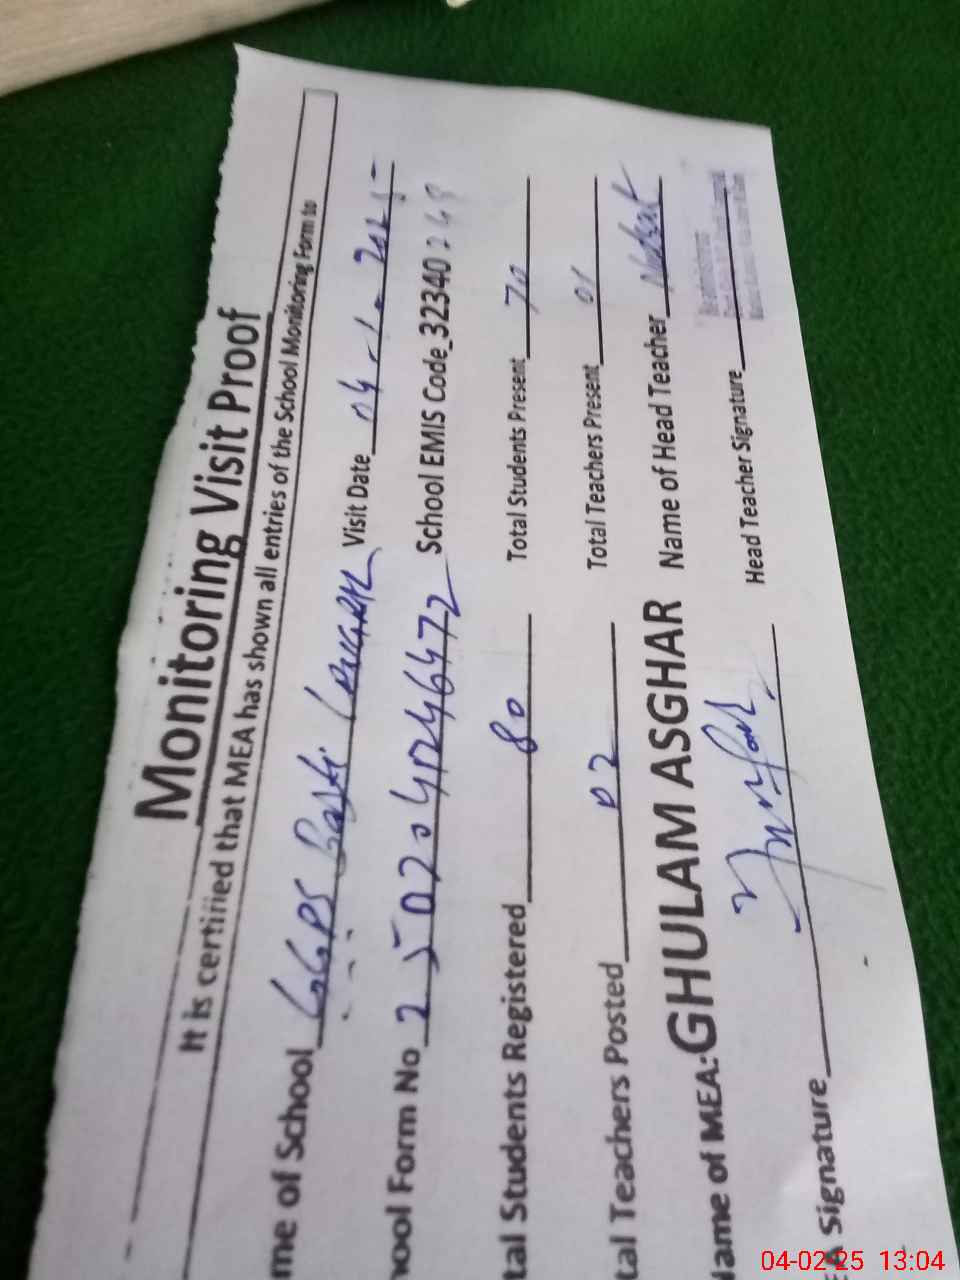 Monitoring Visit Proof
It is certified that MEA has shown all entries of the School Monitoring Form to
me of School GGPS Basti Visit Date 04 2025
hool Form No 2502041246472 School EMIS Code 32340248
tal Students Registered 80 Total Students Present 70
tal Teachers Posted 02 Total Teachers Present 01
Name of MEA: GHULAM ASGHAR Name of Head Teacher Nusrat
A Signature Head Teacher Signature
04-02-25 13:04